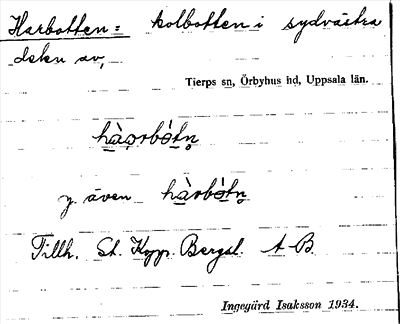 Harbotten = kolbotten i sydvästra
delen av,
Tierps sn, Örbyhus hd, Uppsala län.
hàorbótn̥
y. även hàrbótn̥
Tillh. St. Kopp. Bergsl. A-B.
Ingegärd Isaksson 1934.